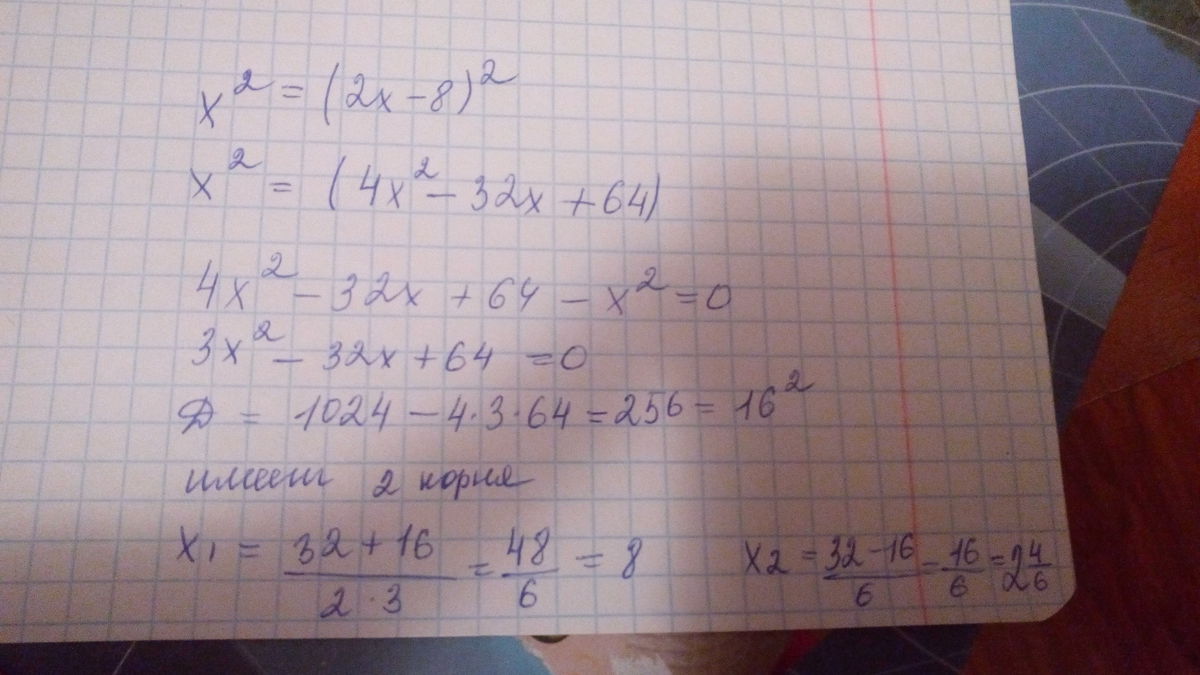 x² = (2x - 8)²
x² = (4x² - 32x + 64)
4x² - 32x + 64 - x² = 0
3x² - 32x + 64 = 0
Д = 1024 - 4·3·64 = 256 = 16²
имеет 2 корня
x₁ = (32 + 16)/(2·3) = 48/6 = 8 x₂ = (32 - 16)/6 = 16/6 = 2 4/6